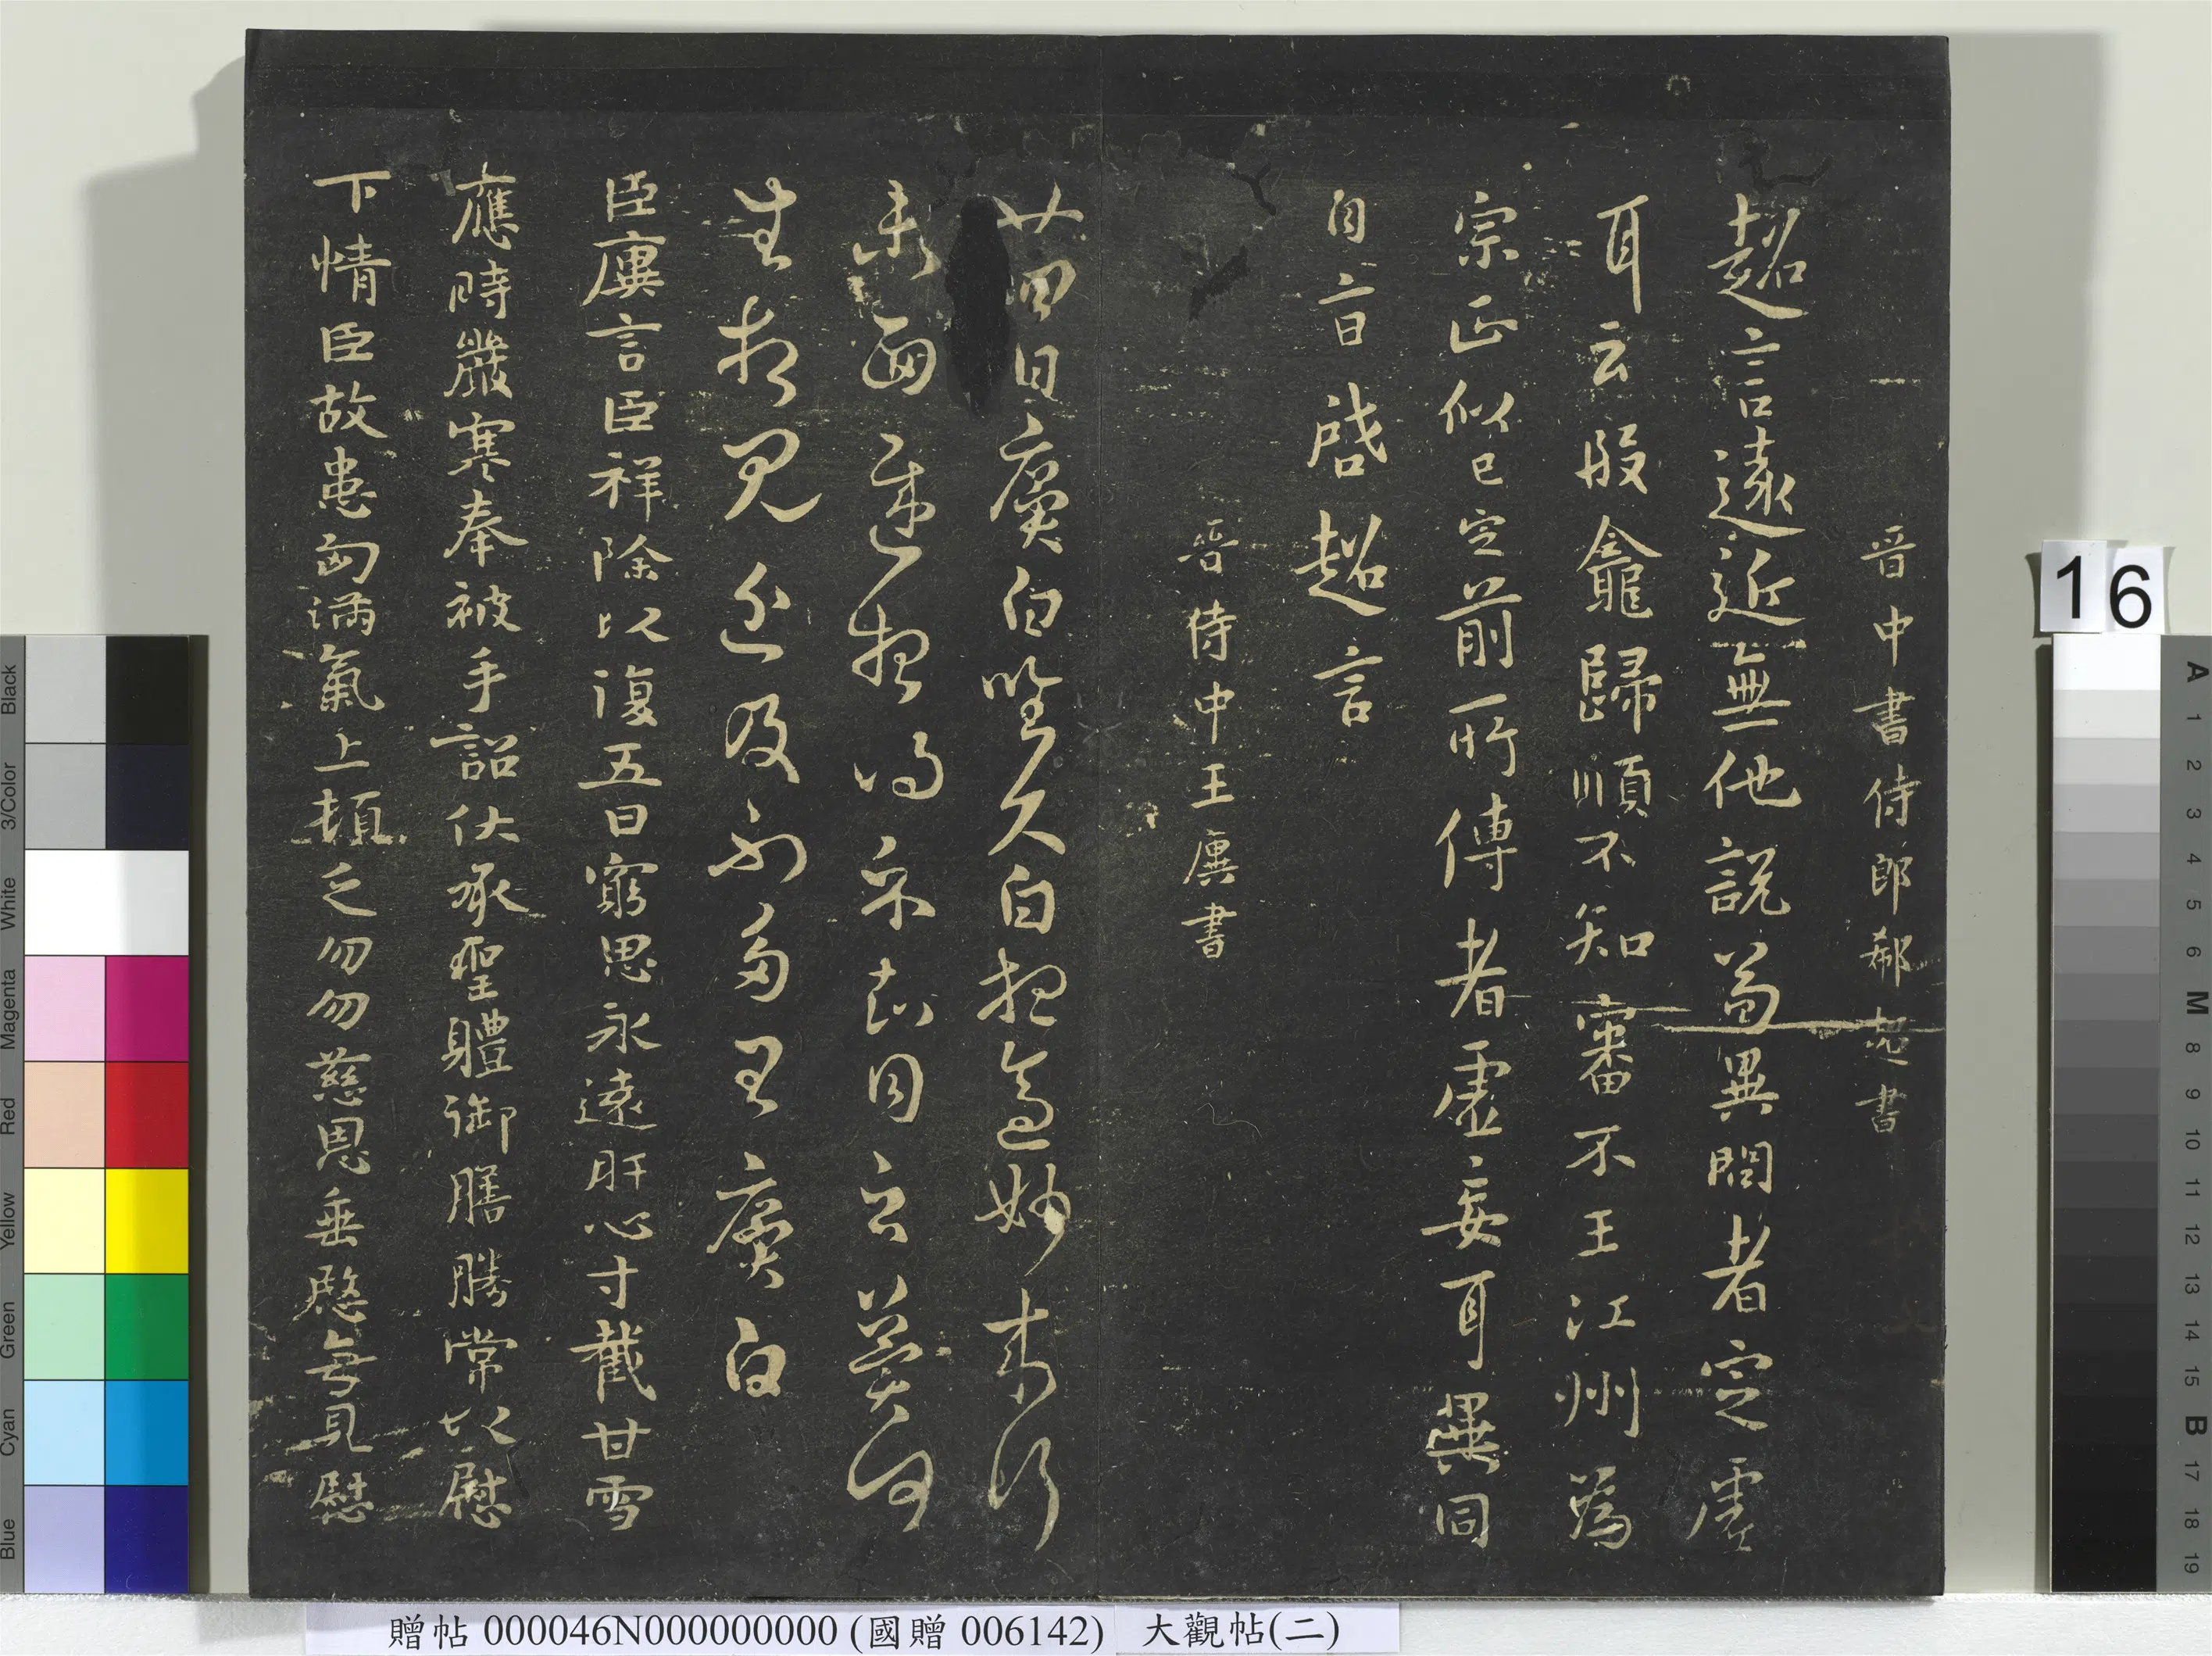 晋中書侍郎郗超書
超言遠近無他説當異問者定虛
耳云段龕歸順不知審不王江州爲
宗正似已定前所傳者虛妄耳異同
自啓超言
晋侍中王廙書
廿四日廙白昨久白想妙未行
未面遲想得示知同之
生見近及不多王廙白
臣廙言臣祥除以復五日窮思永遠肝心寸截甘雪
應時嚴寒奉被手詔伏承聖體御膳勝常以慰
下情臣故患匈滿氣上頓乏勿勿慈恩垂愍每見慰
16
贈帖 000046N000000000 (國贈 006142) 大觀帖(二)
Black
3/Color
White
Magenta
Red
Yellow
Green
Cyan
Blue
A 1 2 3 4 5 6 M 8 9 10 11 12 13 14 15 B 17 18 19